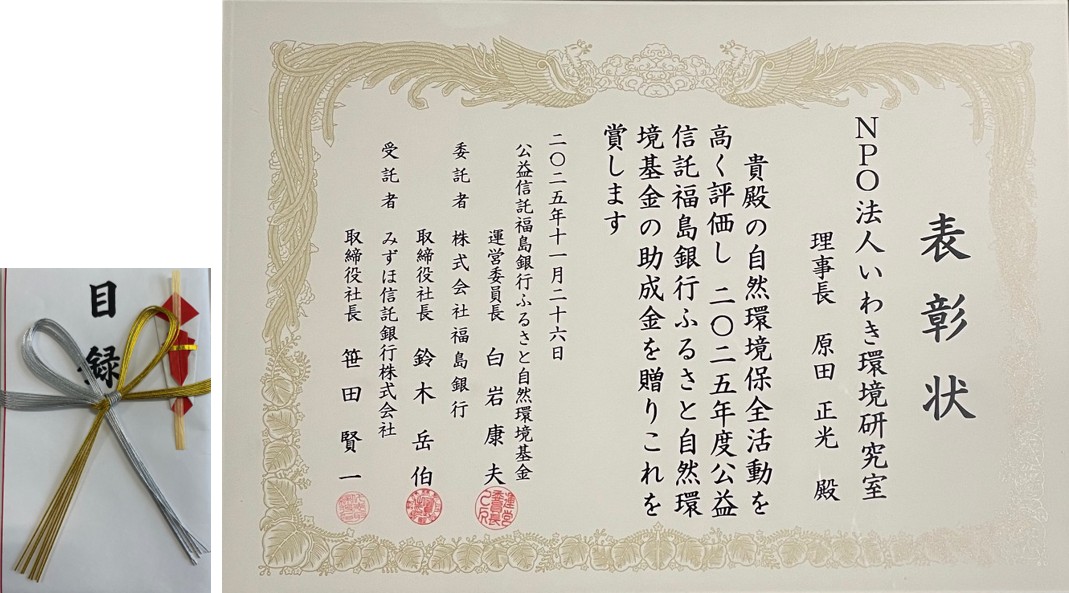 表彰状
NPO法人いわき環境研究室
理事長 原田 正光 殿
貴殿の自然環境保全活動を
高く評価し 二〇二五年度公益
信託福島銀行ふるさと自然環
境基金の助成金を贈りこれを
賞します
二〇二五年十一月二十六日
公益信託福島銀行ふるさと自然環境基金
運営委員長 白岩康夫
委託者 株式会社福島銀行
取締役社長 鈴木岳伯
受託者 みずほ信託銀行株式会社
取締役社長 笹田賢一
目録